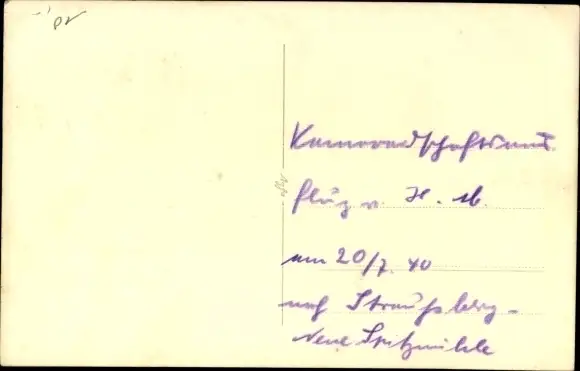 Kameradschaftsaus
flug v. H. M.
am 20/7. 40
nach Straußberg-
Neue Spitzmühle